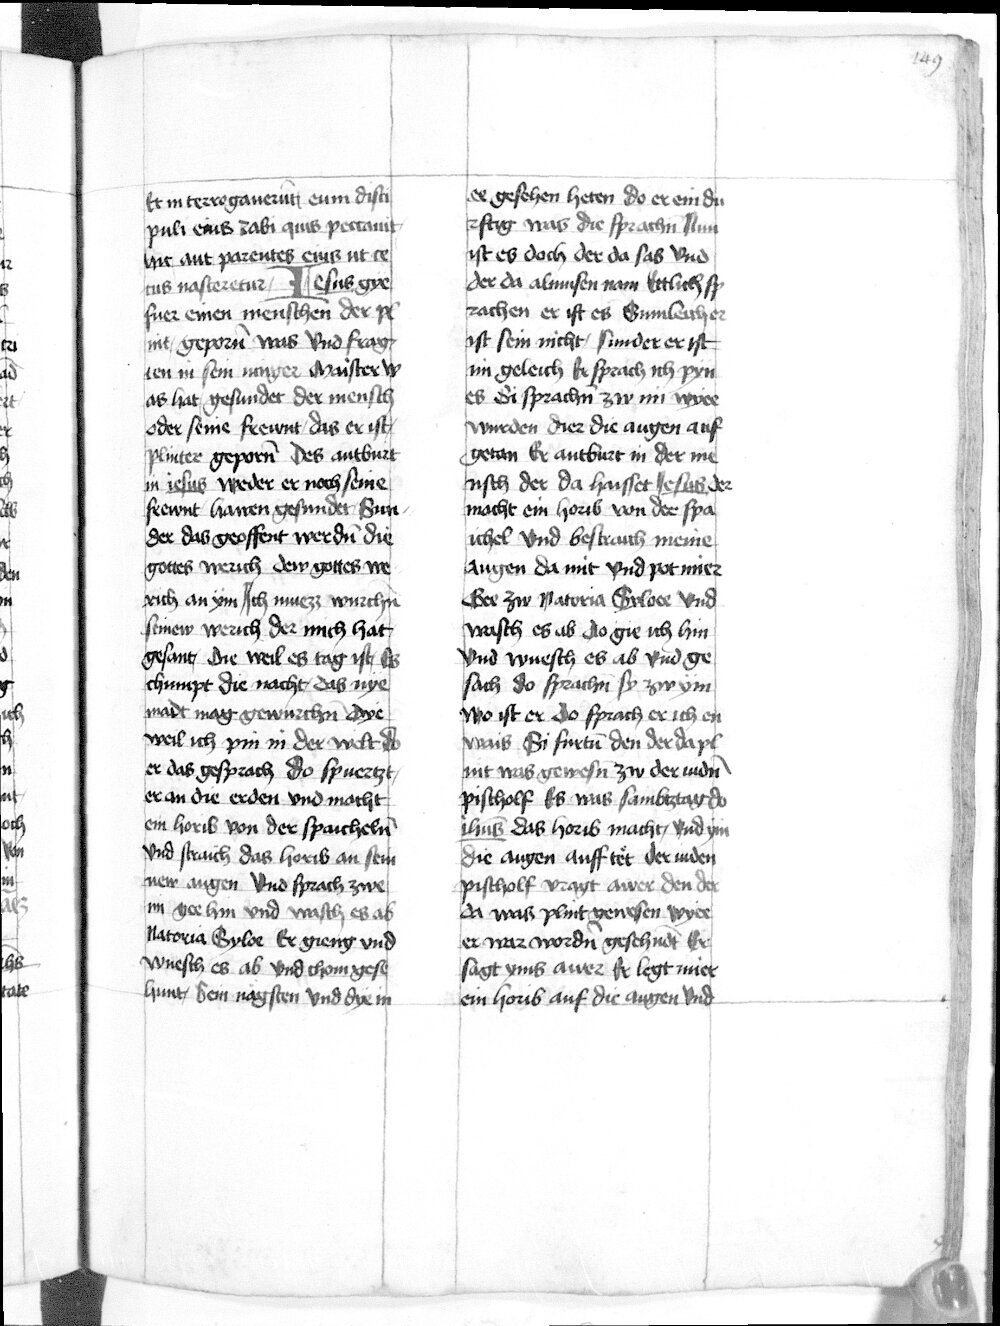 149
Et in terrogauerūt eum disci
puli eius rabi quis peccauit
hic aut parentes eius ut ce
cus nasceretur Iesus gye
fuer einen menschen der pl
int geporn̄ was vnd frag
ten in sein iunger Maister w
as hat gesundet der mensch
oder seine frewnt das er ist
plinter geporn̄ Des antburt
in iesus weder er noch seine
frewnt hawen gesundet Sun
der das geoffent werdn̄ die
gottes werich dew gottes we
rich an ym Ich muezz wurchn̄
seinew werich der mich hat
gesant Die weil es tag ist Es
chumpt die nacht das nye
madt mag gewurchn̄ Dye
weil ich pin in der welt do
er das gesprach do spuertzt
er an die erden vnd macht
ein horib von der spaicheln̄
vnd straich das horib an sein
new augen vnd sprach zwe
im gee hin vnd wasch es ab
Natoria Syloe Er gieng vnd
wuesch es ab vnd chom gese
hunt Sein nagsten vnd dye in
ee gesehen heten do er ein du
rftig was die sprachn̄ Nun
ist es doch der da sas vnd
der da almusen nam Ettlich sp
rachen er ist es Sumleich er
ist sein nicht sunder er ist
im geleich Er sprach ich pyn
es Si sprachn̄ zw im wyee
wurden dier die augen auf
getan Er antburt in der me
nsch der da haisset Iesus der
macht ein horib von der spa
ichel vnd bestraich meine
augen da mit vnd pot mier
Gee zw Natoria Syloee vnd
wasch es ab do gie ich hin
vnd wuesch es ab vnd ge
sach do sprachn̄ sy zw ym
wo ist er Do sprach er ich en
wais Si furtn̄ den der da pl
int was gewesn̄ zw der iudn̄
pischolf Es was sambtztag do
ihūs das horib macht vnd ym
die augen auff tet der iuden
pischolf vragt awer den der
da was plint gewesen wyee
er war wordn̄ geschndt Er
sagt yms awer Er legt mier
ein horib auf die augen vnd